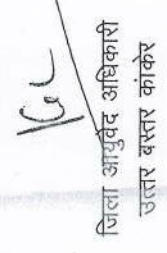 जिला आयुर्वेद अधिकारी
उत्तर बस्तर कांकेर